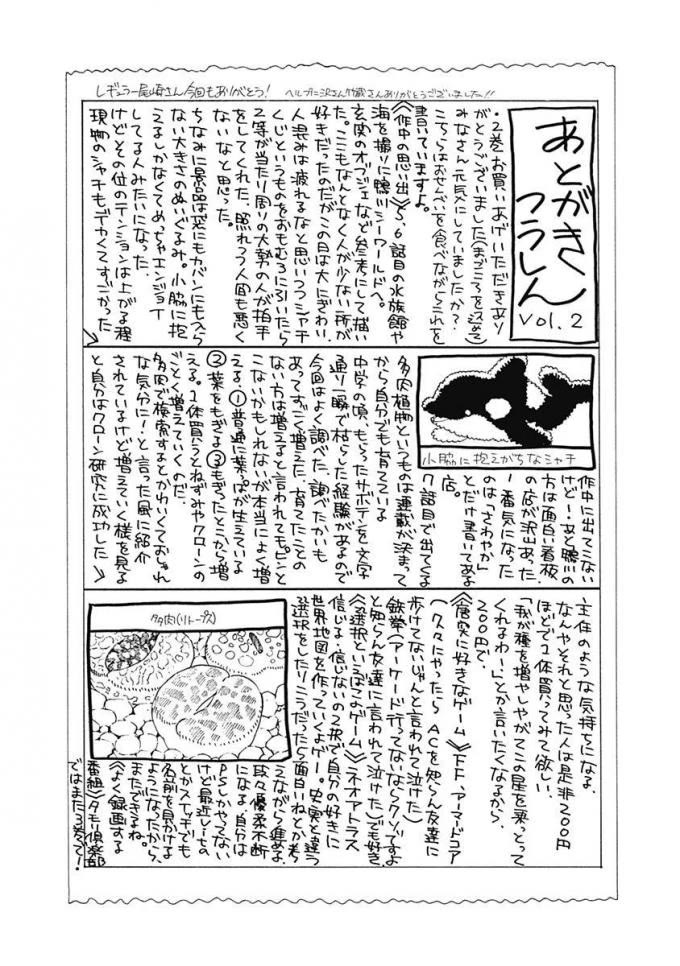 レギュラー尾崎さん今回もありがとう!
あとがき
つうしん
vol.2
・2巻お買いあげいただきあり
がとうございました(まごころを込めて)
みなさん元気にしていましたか?
こちらはおせんべいを食べながらこれを
書いていますよ。
《作中の思い出》5、6話目の水族館や
海を撮りに鴨川シーワールドへ。
玄関のオブジェなど参考にして描い
た。ここもなんとなく人が少ない所が
好きだったのだがこの日は大にぎわい。
人混みは疲れるなと思いつつシャチ
くじというものをおもむろに引いたら
2等が当たり周りの大勢の人が拍手
をしてくれた。照れつつ人間も悪く
ないなと思った。
ちなみに景品は袋にもカバンにも入ら
ない大きさのぬいぐるみ。小脇に抱
えるしかなくてめっちゃエンジョイ
してる人みたいになった
けどその位のテンションは上がる程
現物のシャチもデカくてすごかった
小脇に抱えがちなシャチ
作中に出てこない
けど!あと鴨川の
方は面白い看板
の店が沢山あった
1番気になった
のは「さわやか」
とだけ書いてある
店。
7話目で出てくる
多肉植物というものは連載が決まって
から自分でも育てている
中学の頃、もらったサボテンを文字
通り一瞬で枯らした経験があるので
今回はよく調べた、調べたかいも
あってすごく増えた、育てたことの
ない方は増えると言われてもピンと
こないかもしれないが本当によく増
える。①普通に葉っぱが生えている
②葉をもぎる③もぎったとこから増
える。1体買うとねずみやクローンの
ごとく増えていくのだ、
多肉で検索するとかわいくておしゃれ
な気分に!と言った風に紹介
されているけど増えていく様を見る
と自分はクローン研究に成功した
主任のような気持ちになる。
なんやそれと思った人は是非200円
ほどで1体買ってみて欲しい、
「我が種を増やしやがてこの星を乗っとって
くれるわー」とか言いたくなるから、
200円で。
《唐突に好きなゲーム》FF、アーマードコア
(久々にやったら ACを知らん友達に
歩けてないじゃんと言われて泣けた)
鉄拳(アーケード行ってないならクソですよ
と知らん友達に言われて泣けた)でも好き、
《選択といえばこのゲーム》ネオアトラス
信じる・信じないの2択で自分の好きに
世界地図を作っていくよゲー。史実と違う
選択をしたりこうだったら面白いねとか考
えながら進めよ、
段々優柔不断
になる。自分は
PSしかやってない
けど最近Lの
とかスイッチでも
名前を見かける
ようになったから、
またできるね。
《よく録画する
番組》タモリ倶楽部
ではまた3巻で!
多肉(リトープス)